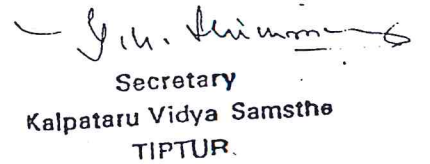 Secretary
Kalpataru Vidya Samsthe
TIPTUR.